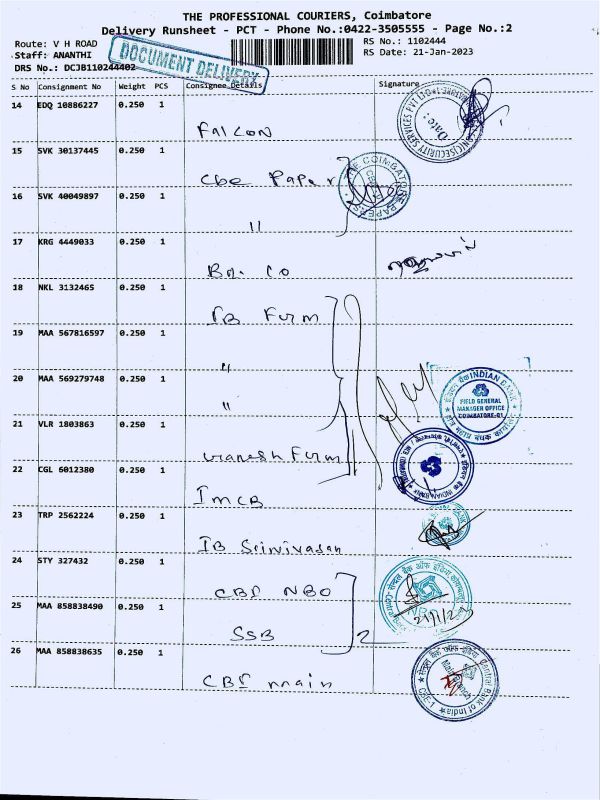 THE PROFESSIONAL COURIERS, Coimbatore
Delivery Runsheet - PCT - Phone No.:0422-3505555 - Page No.:2
Route: V H ROAD
RS No.: 1102444
Staff: ANANTHI
RS Date: 21-Jan-2023
DRS No.: DCJB110244402
DOCUMENT DELIVERY
S No Consignment No Weight PCS Consignee Details Signature
14 EDQ 10886227 0.250 1
Falcon
15 SVK 30137445 0.250 1
Cbe Paper
16 SVK 40049897 0.250 1
"
17 KRG 4449033 0.250 1
18 NKL 3132465 0.250 1
IB Furm
19 MAA 567816597 0.250 1
"
20 MAA 569279748 0.250 1
"
INDIAN BANK
FIELD GENERAL
MANAGER OFFICE
COIMBATORE-01
21 VLR 1803863 0.250 1
Granesh Furm
22 CGL 6012380 0.250 1
IMCB
23 TRP 2562224 0.250 1
IB Srinivasan
24 STY 327432 0.250 1
CBI NBO
25 MAA 858838490 0.250 1
SSB
2
21/1/23
26 MAA 858838635 0.250 1
CBI main
Central Bank of India
CBE-1